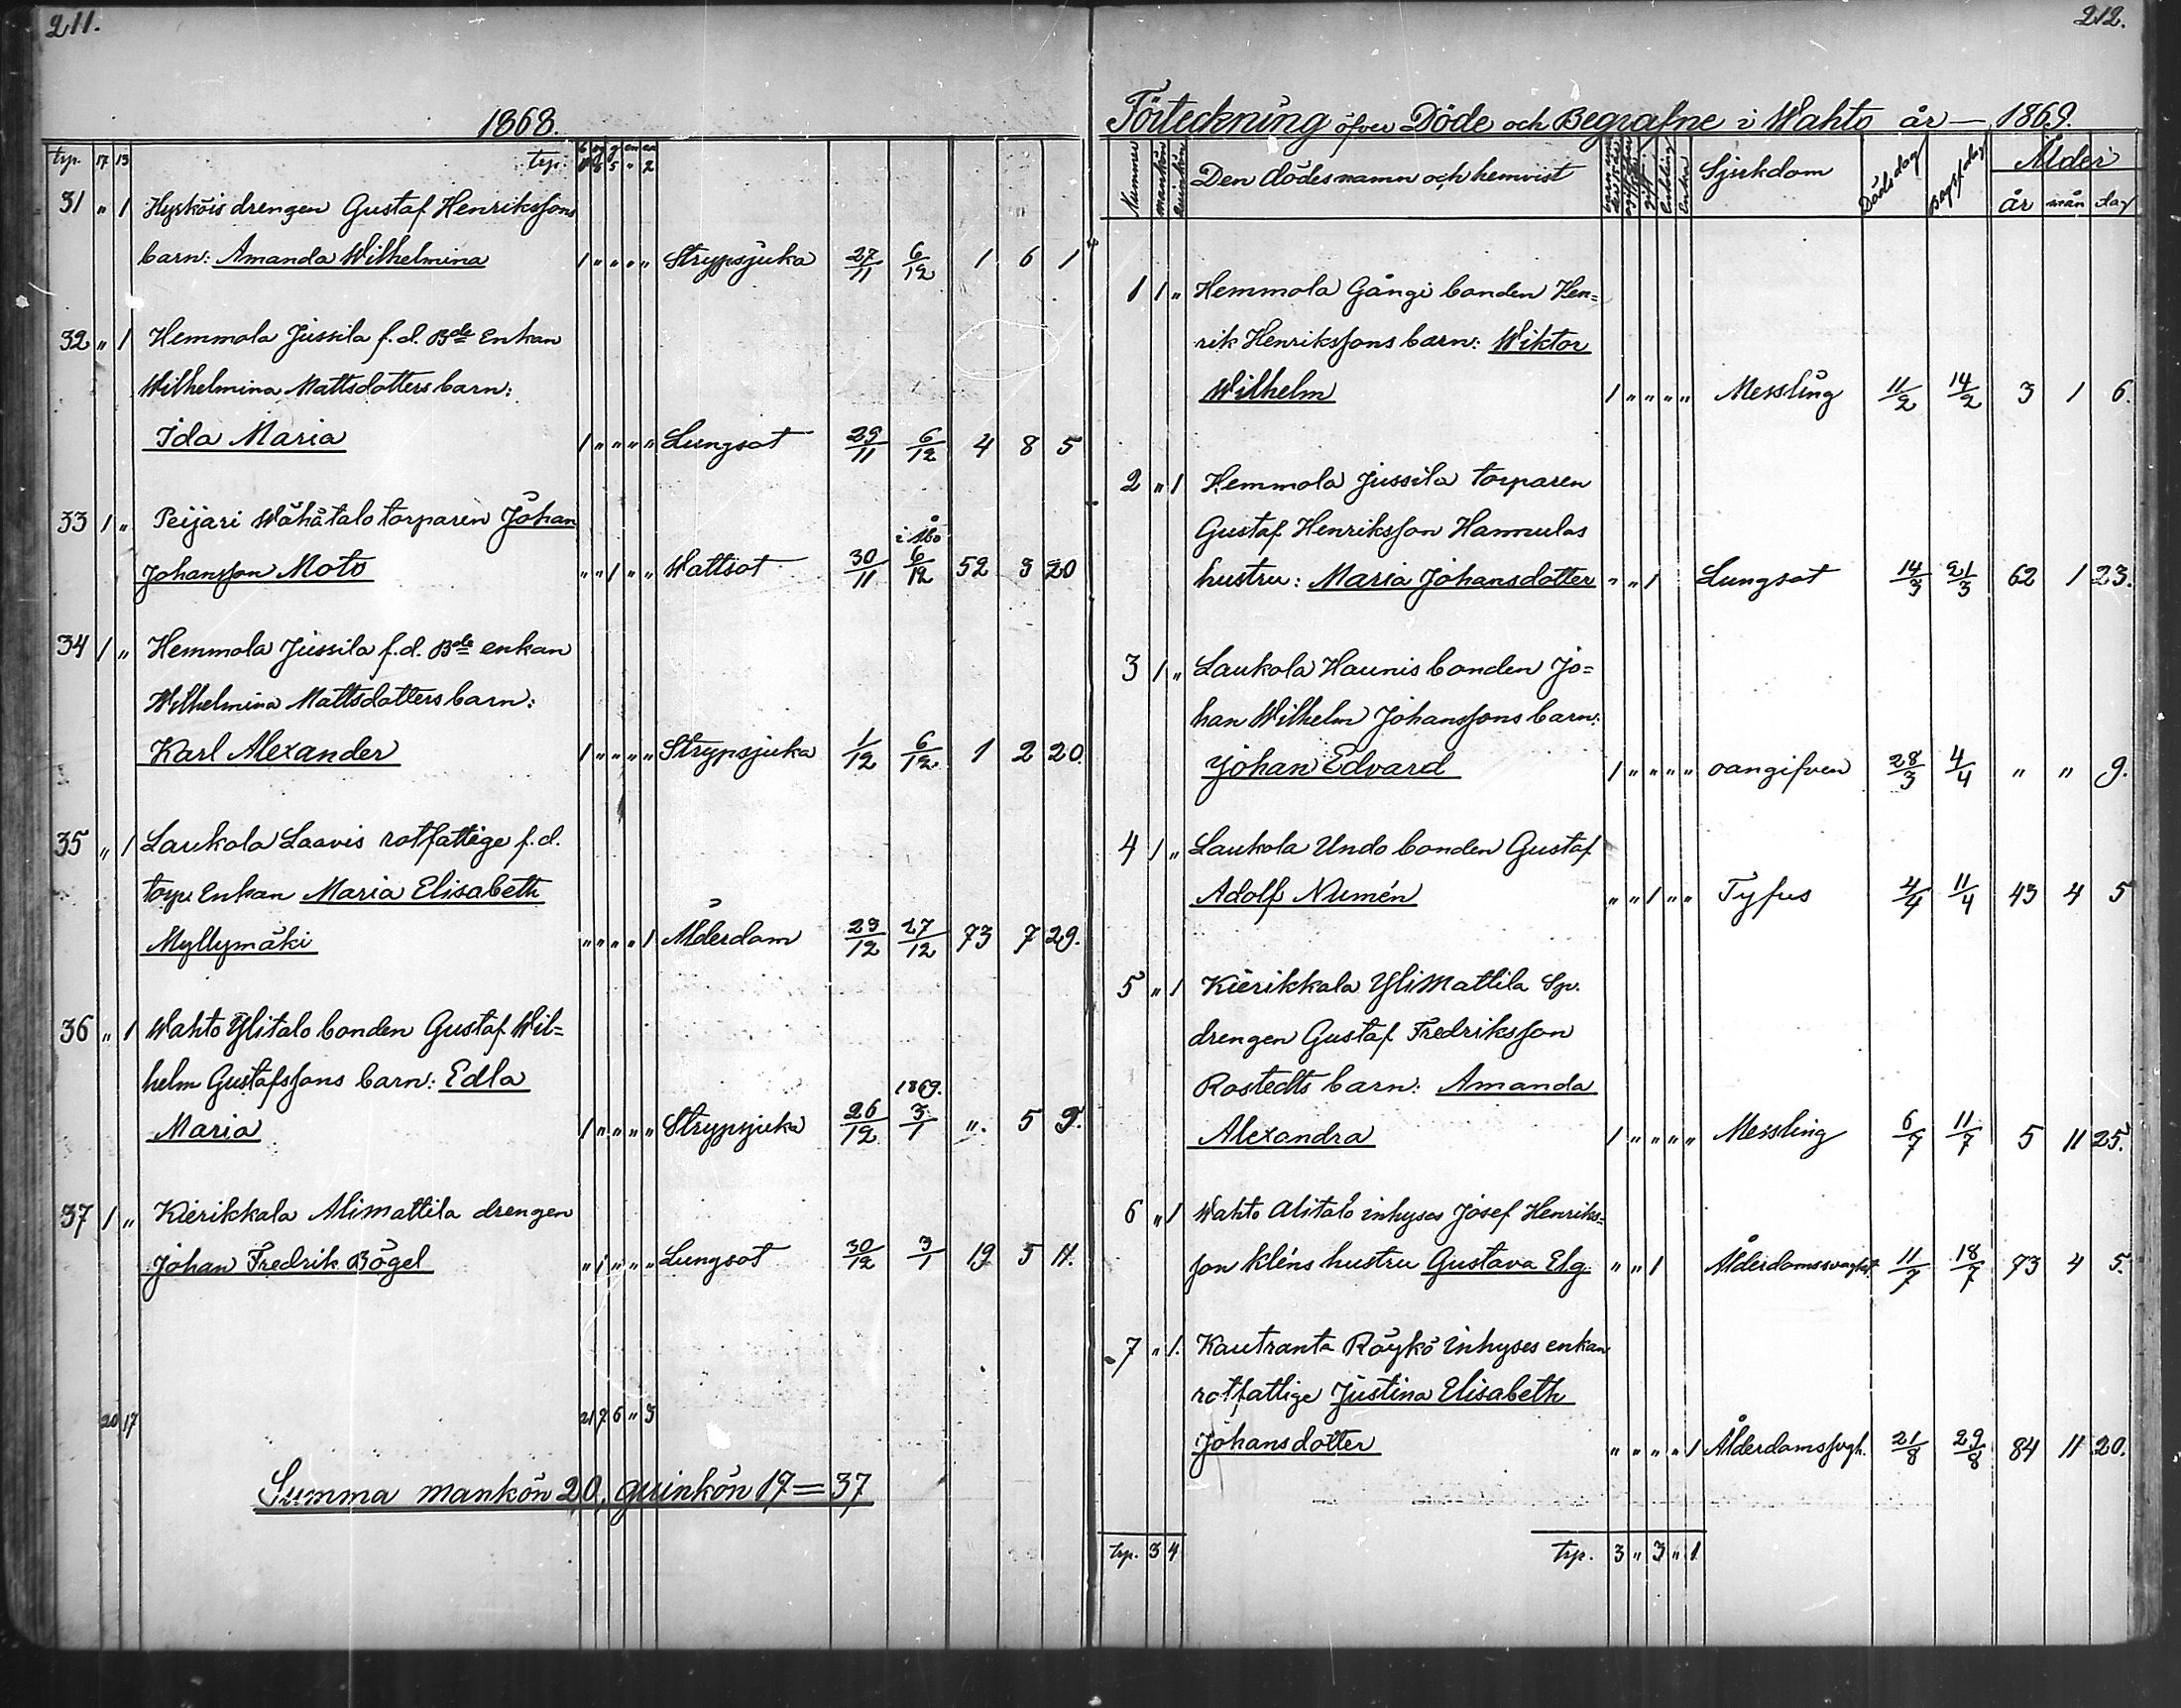 211.
1868.
trp. 17 13 trp:
31 " 1 Hyrköis drengen Gustaf Henrikssons
barn: Amanda Wilhelmina 1 " " " " Strypsjuka 27/11 6/12 1 6 1
32 " 1 Hemmola Jussila f.d. Bde Enkan
Wilhelmina Mattsdotters barn:
Ida Maria 1 " " " " Lungsot 29/11 6/12 4 8 5
33 1 " Peijari Wähätalo torparen Johan
i Åbo
Johansson Moto " " 1 " " Wattsot 30/11 6/12 52 3 20
34 1 " Hemmola Jussila f.d. Bde enkan
Wilhelmina Mattsdotters barn:
Karl Alexander 1 " " " " Strypsjuka 1/12 6/12 1 2 20.
35 " 1 Laukola Laavis rotfattige f.d.
torp. Enkan Maria Elisabeth
Myllymäki " " " " 1 Ålderdom 23/12 27/12 73 7 29.
36 " 1 Wahto Ylitalo bonden Gustaf Wil=
helm Gustafssons barn: Edla
1869.
Maria 1 " " " " Strypsjuka 26/12 3/1 ". 5 9.
37 1 " Kierikkala Alimattila drengen
Johan Fredrik Bögel " 1 " " " Lungsot 30/12 3/1 19 5 11.
20 17 21 7 6 " 3
Summa mankön 20, quinkön 17 = 37
212.
Förteckning öfver Döde och Begrafne i Wahto år — 1869.
Nummer mankön quinkön Den dödes namn och hemvist Enkling Enka Sjukdom Dödsdag Begrfdag Ålder
år mån dag
1 1 " Hemmola Gångi bonden Hen=
rik Henrikssons barn: Wiktor
Wilhelm 1 " " " " Messling 11/2 14/2 3 1 6.
2 " 1 Hemmola Jussila torparen
Gustaf Henriksson Hannulas
hustru: Maria Johansdotter " " 1 Lungsot 14/3 21/3 62 1 23.
3 1 " Laukola Haunis bonden Jo=
han Wilhelm Johanssons barn:
Johan Edvard 1 " " " " oangifven 28/3 4/4 " " 9.
4 1 " Laukola Undo bonden Gustaf
Adolf Numén " " 1 " " Tyfus 4/4 11/4 43 4 5
5 " 1 Kierikkala YliMattila Sp.
drengen Gustaf Fredriksson
Rostedts barn: Amanda
Alexandra 1 " " " " Messling 6/7 11/7 5 11 25.
6 " 1 Wahto Alitalo inhyses Josef Henriks=
son Kléns hustru Gustava Elg " " 1 Ålderdomssvaghet 11/7 18/7 73 4 5.
7 " 1. Kautranta Röykö inhyses enkan
rotfattige Justina Elisabeth
Johansdotter " " " " 1 Ålderdomssvgh. 21/8 29/8 84 11 20.
trp. 3 4 trp. 3 " 3 " 1